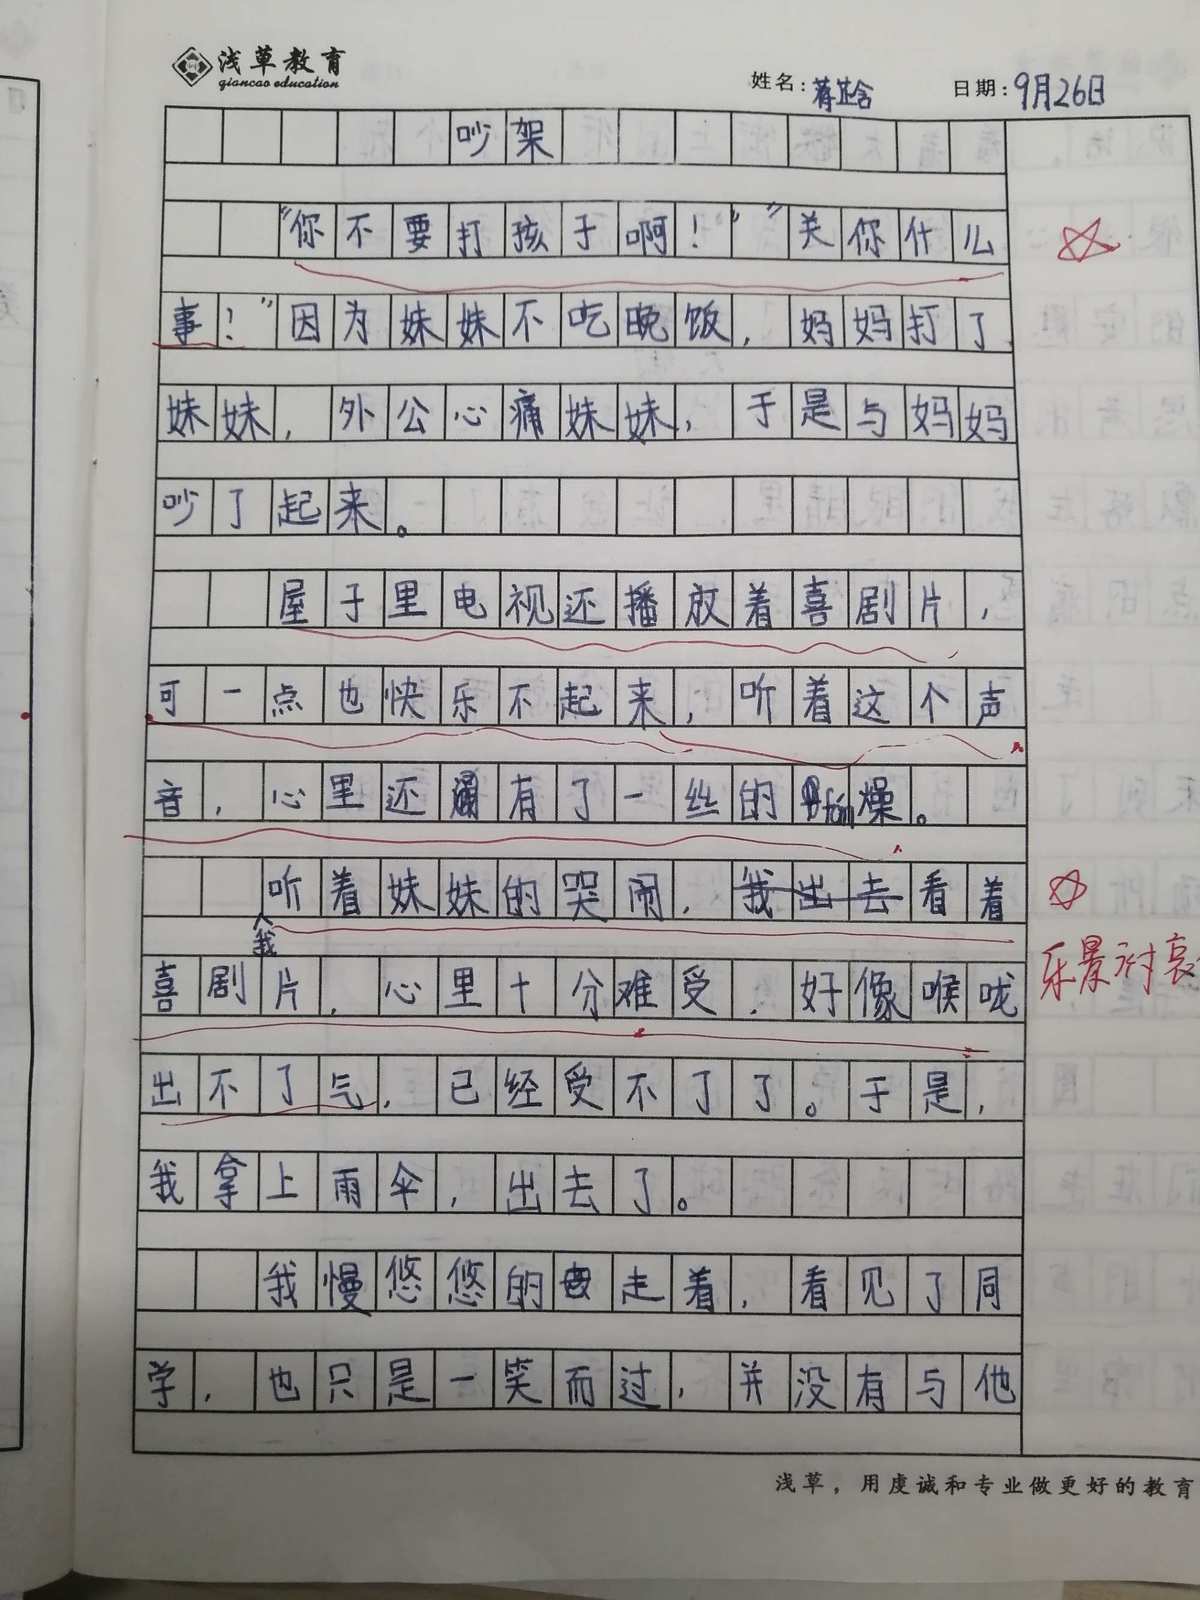 浅草教育
qiancao education
姓名: 日期: 9月26日
吵架
"你不要打孩子啊！""关你什么
事！"因为妹妹不吃晚饭，妈妈打了
妹妹，外公心痛妹妹，于是与妈妈
吵了起来。
屋子里电视还播放着喜剧片，
可一点也快乐不起来，听着这个声
音，心里还涌有了一丝的 燥。
听着妹妹的哭闹，我出去看着
我
喜剧片，心里十分难受，好像喉咙
乐景衬哀
出不了气，已经受不了了。于是，
我拿上雨伞，出去了。
我慢悠悠的走着，看见了同
学，也只是一笑而过，并没有与他
浅草，用虔诚和专业做更好的教育